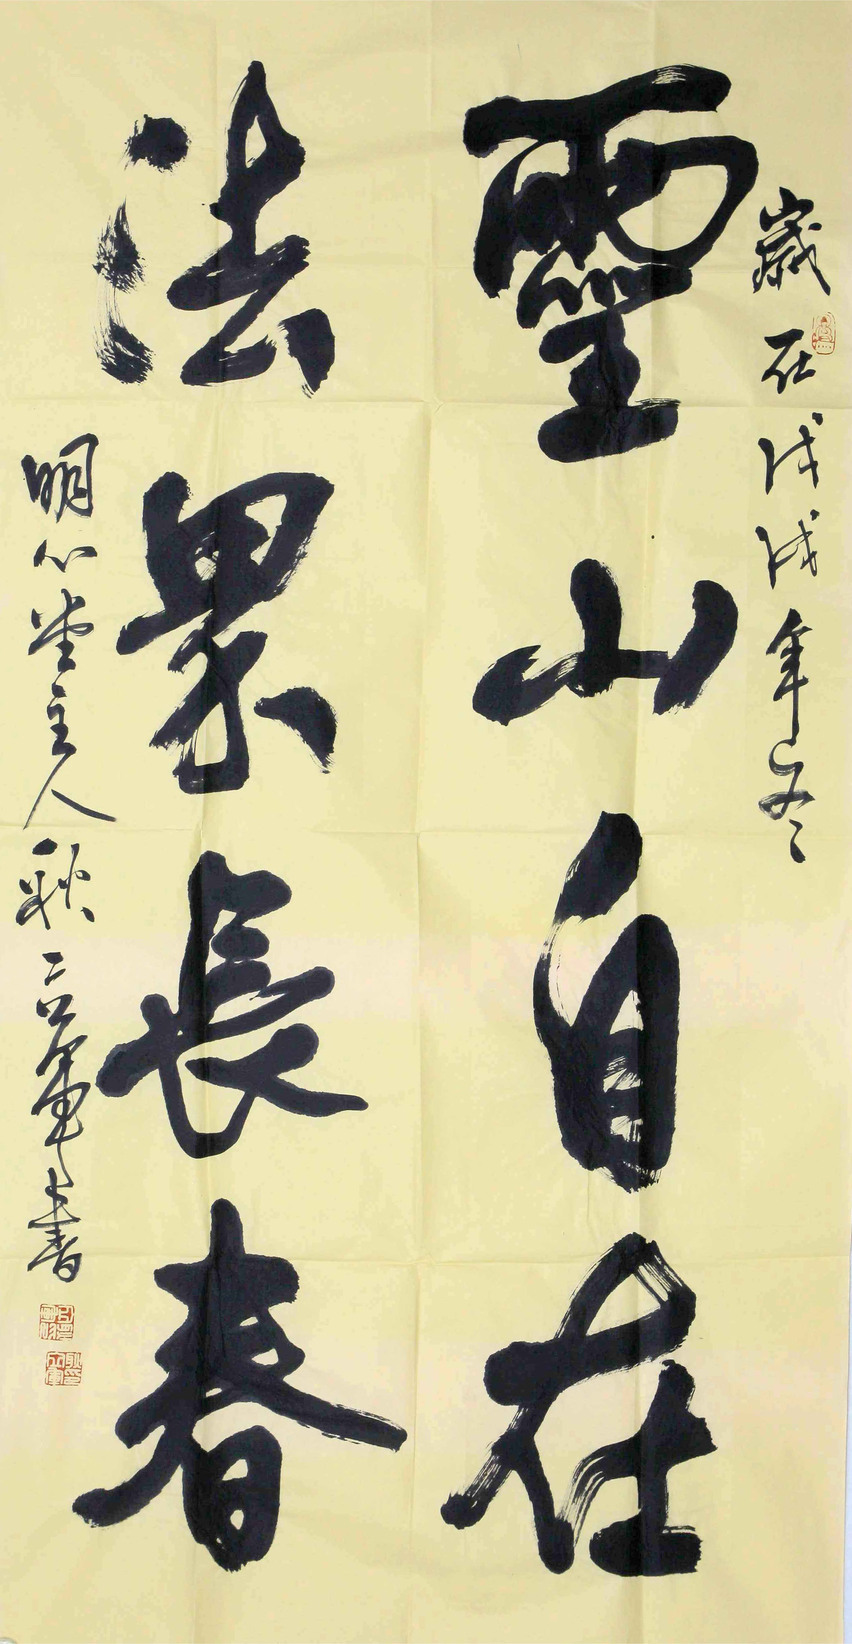 歲在戊戌年冬
靈山自在
法界長春
明心堂主人耿立軍書